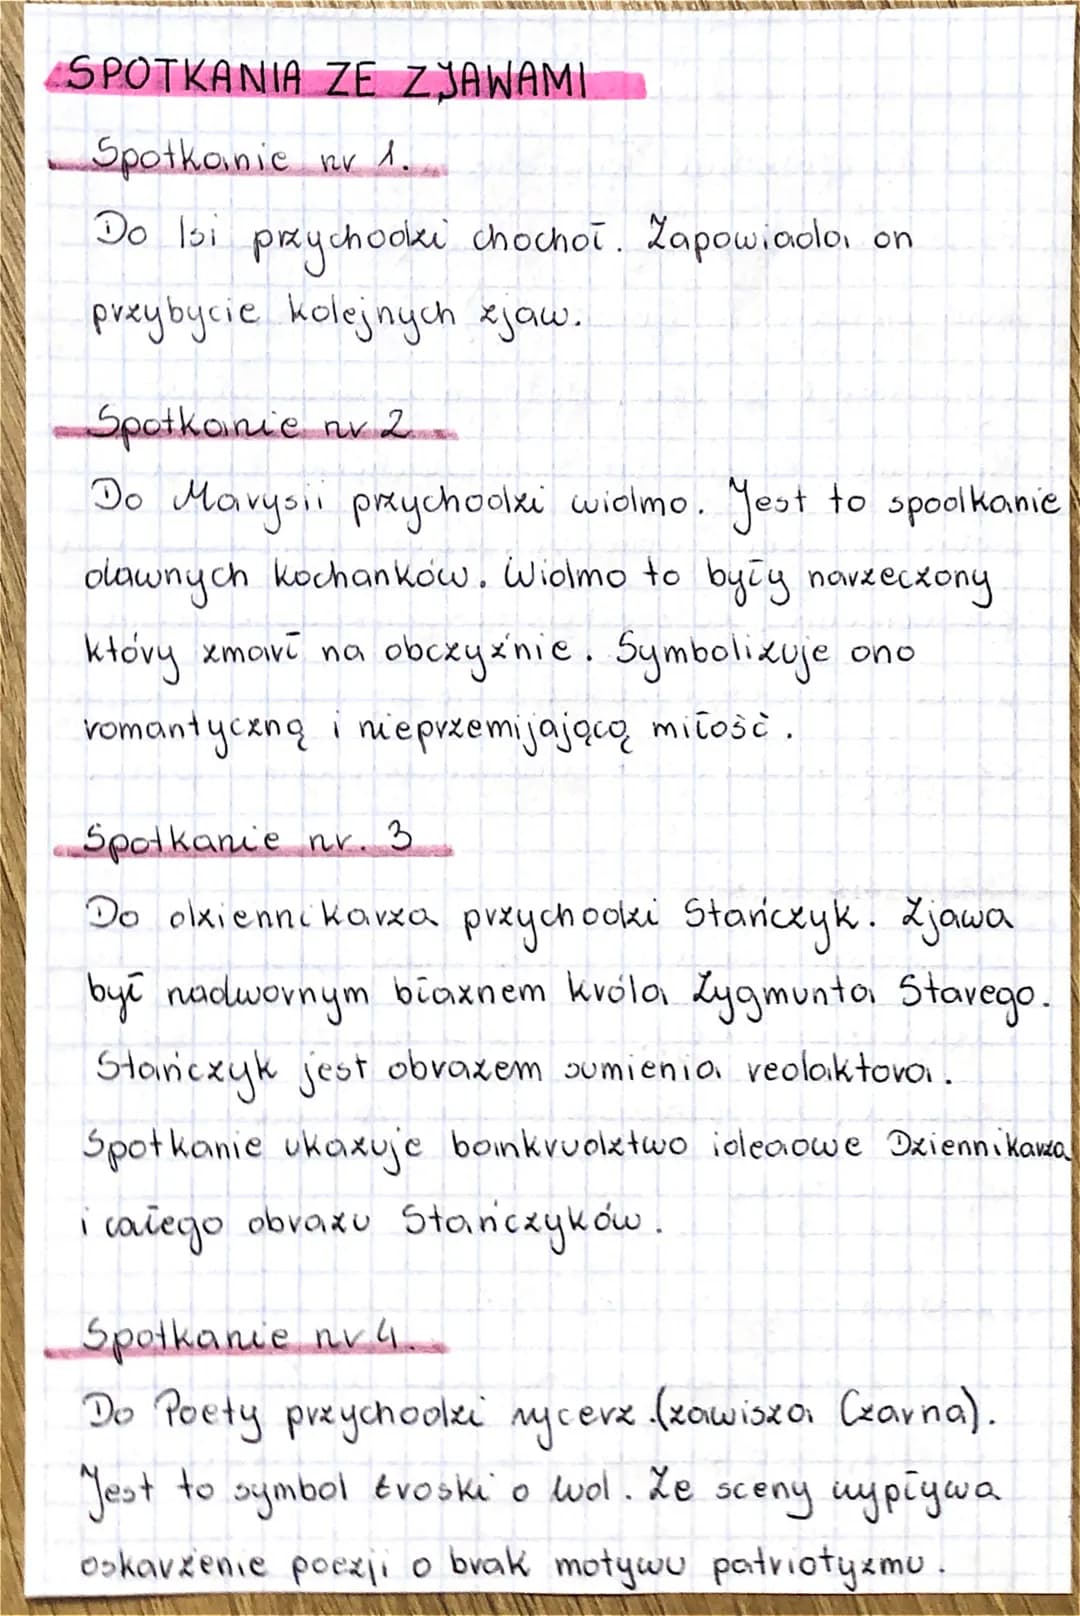 SPOTKANIA ZE ZJAWAMI
Spotkanie nr 1.
Do Isi przychodzi chochoł. Zapowiada on
przybycie kolejnych zjaw.
Spotkanie nr 2.
Do Marysii przychodzi widmo. Jest to spodkanie
dawnych kochanków. Widmo to były narzeczony
który zmarł na obczyźnie. Symbolizuje ono
romantyczną i nieprzemijającą miłość.
Spotkanie nr. 3
Do dziennikarza przychodzi Stańczyk. Zjawa
był nadwornym błaznem króla Zygmunta Starego.
Stańczyk jest obrazem sumienia redaktora.
Spotkanie ukazuje bankrudztwo ideaowe Dziennikarza
i całego obrazu Stańczyków.
Spotkanie nr 4.
Do Poety przychodzi rycerz (zawisza Czarna).
Jest to symbol troski o lud. Ze sceny wypływa
oskarżenie poezji o brak motywu patriotyzmu.